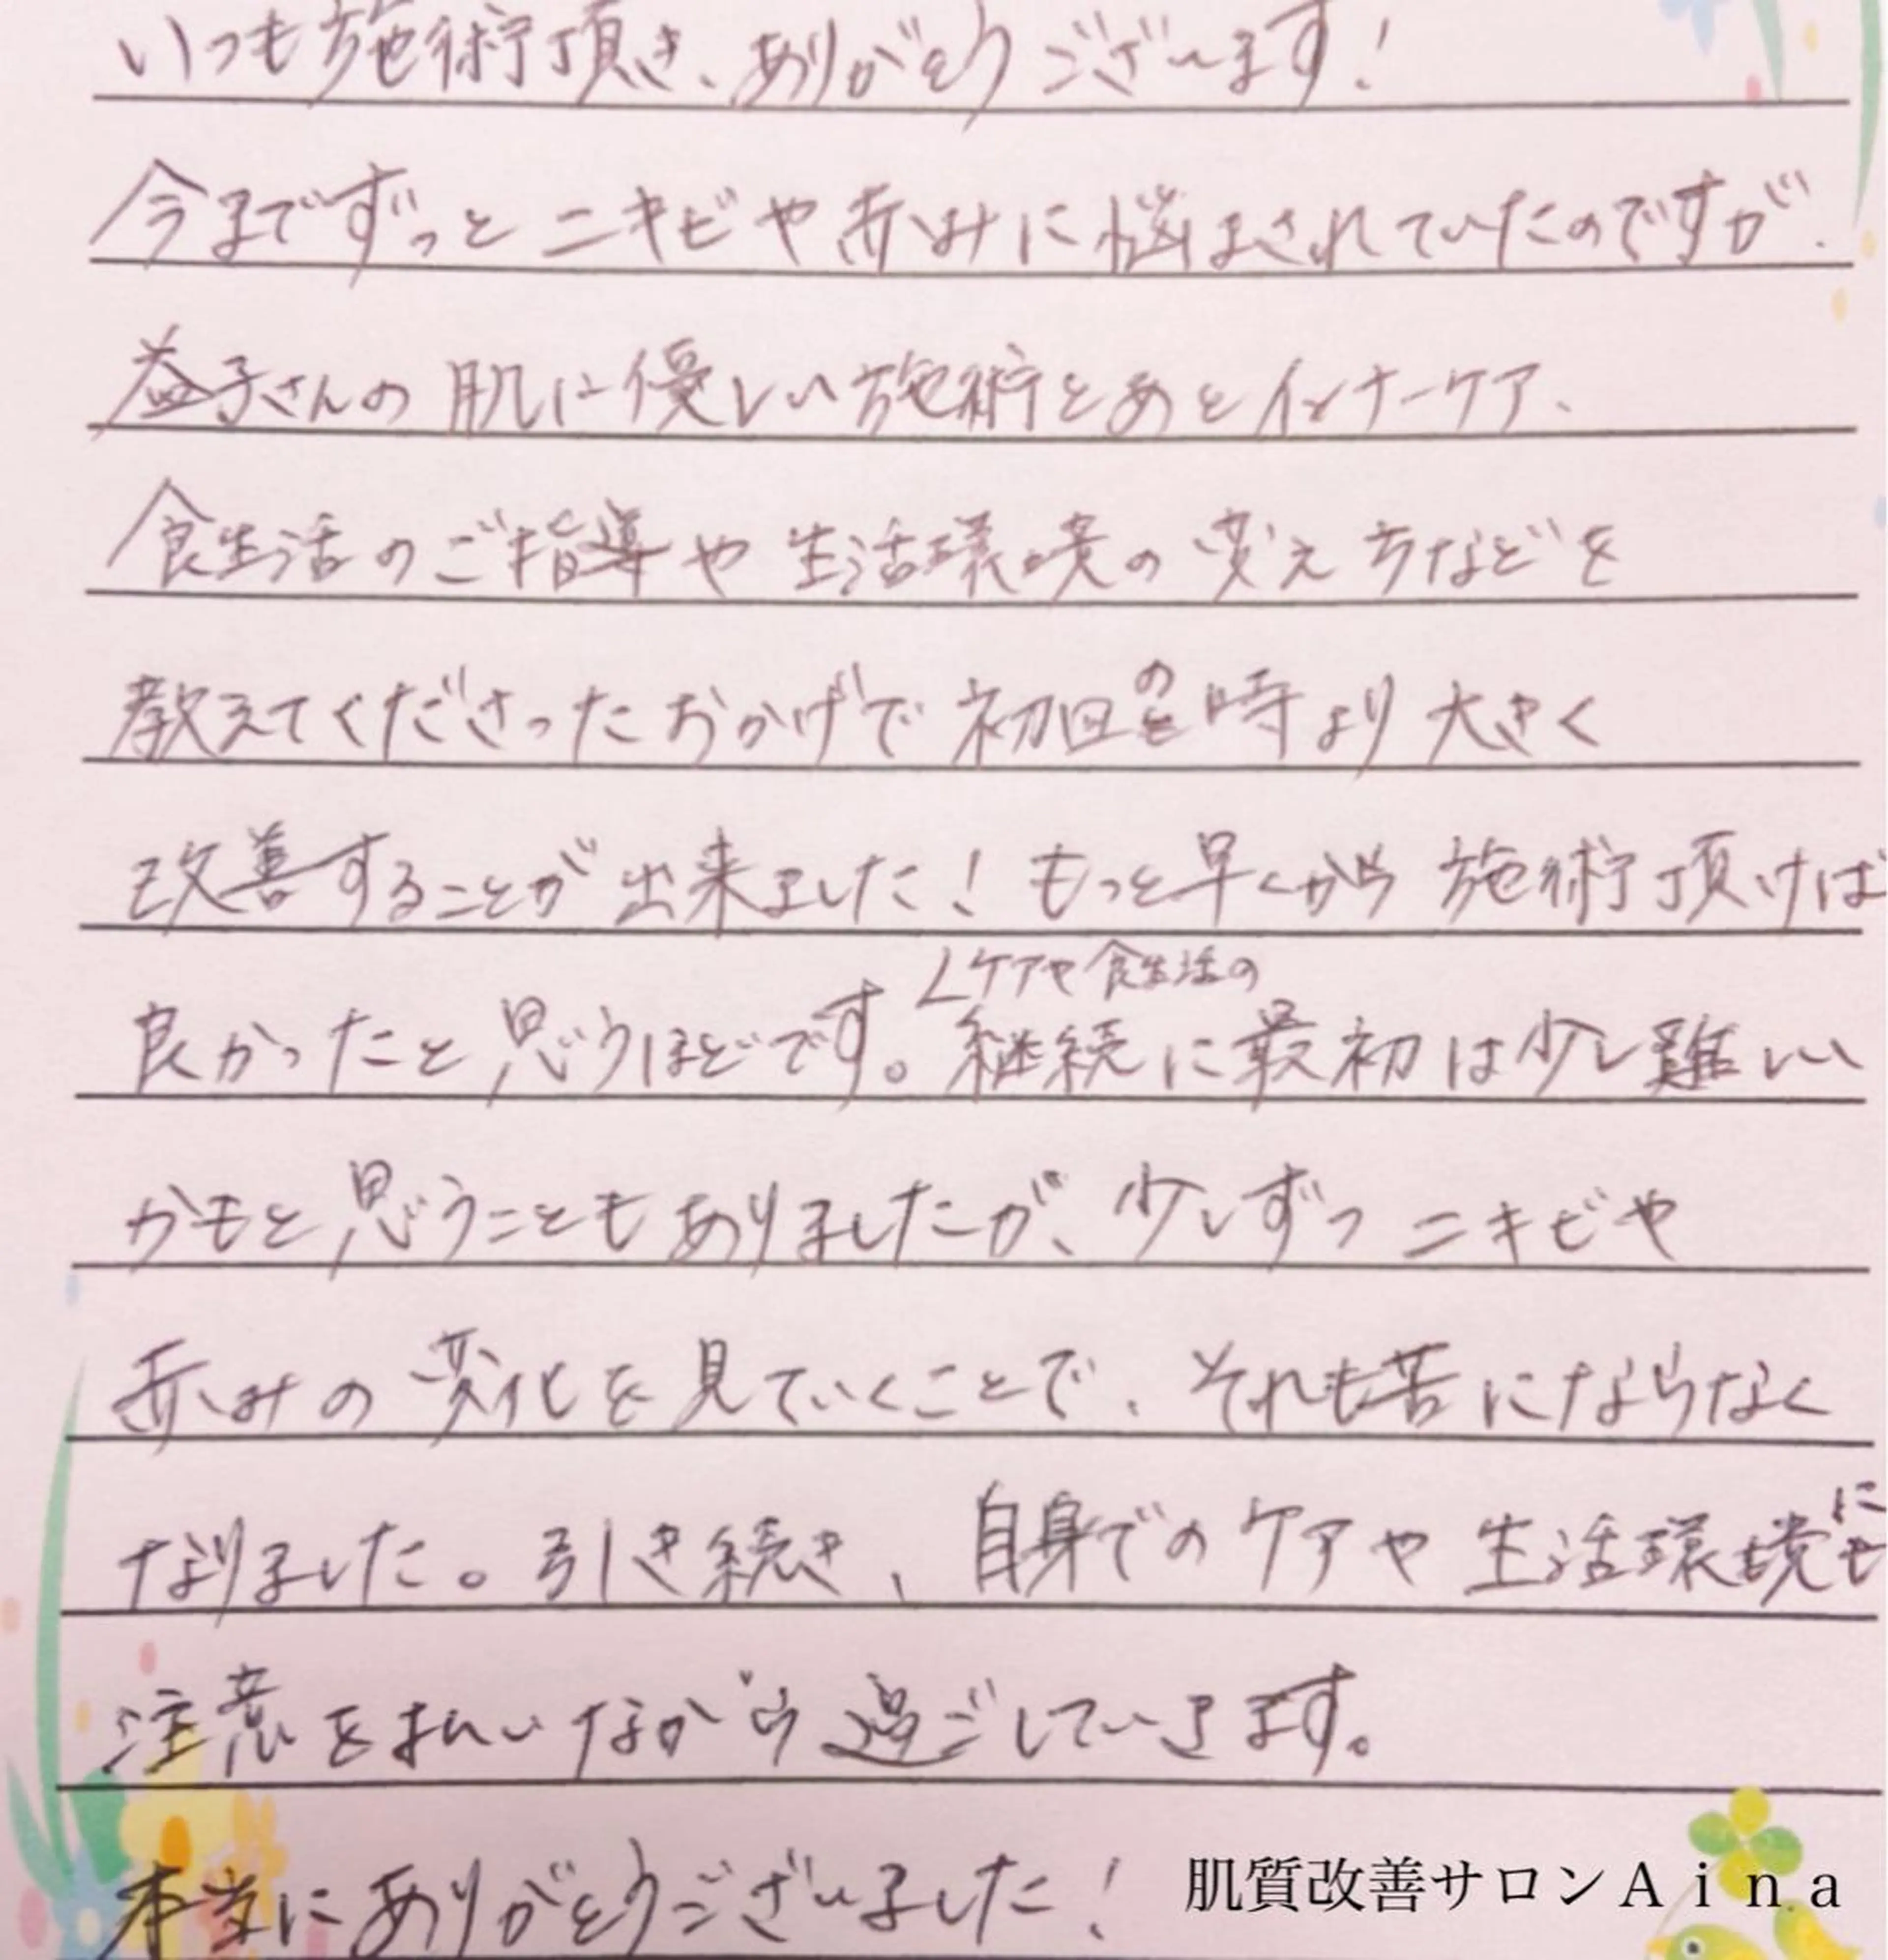 いつも施術頂き、ありがとうございます!
今までずっとニキビや赤みに悩まされていたのですが、
益子さんの肌に優しい施術とあとインナーケア、
食生活のご指導や生活環境の変え方などを
教えてくださったおかげで初回の時より大きく
改善することが出来ました!もっと早くから施術頂けば
良かったと思うほどです。ケアや食生活の継続に最初は少し難しい
かもと思うこともありましたが、少しずつニキビや
赤みの変化を見ていくことで、それも苦にならなく
なりました。引き続き、自身でのケアや生活環境にも
注意をはらいながら過ごしていきます。
本当にありがとうございました!
肌質改善サロンAina